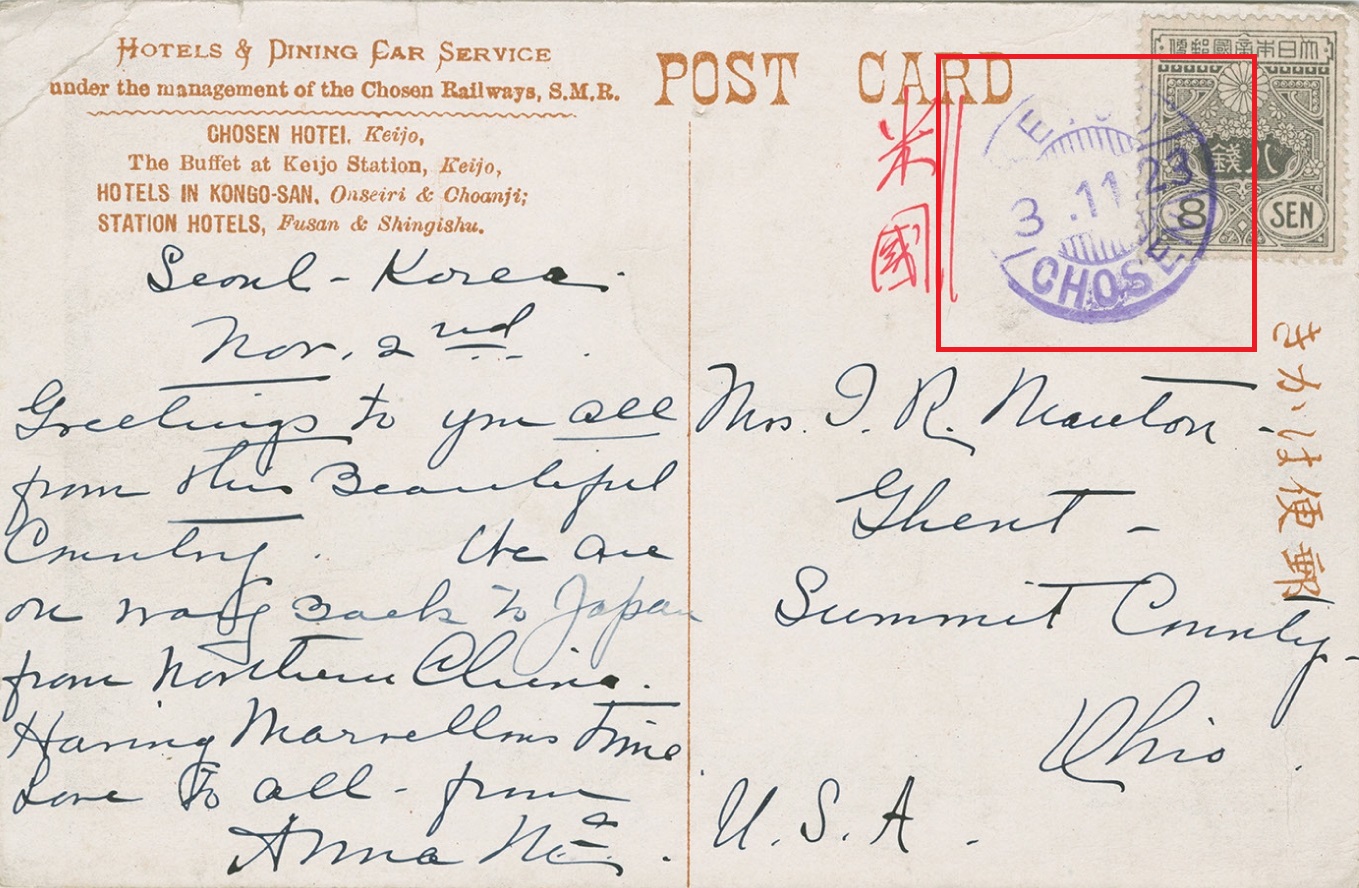 HOTELS & DINING CAR SERVICE
under the management of the Chosen Railways, S.M.R.
CHOSEN HOTEL, Keijo,
The Buffet at Keijo Station, Keijo,
HOTELS IN KONGO-SAN, Onseiri & Choanji;
STATION HOTELS, Fusan & Shingishu.
POST CARD
米國
3.11.23
CHOSEN
大日本帝國郵便
八錢
8 SEN
郵便はかき
Seoul - Korea.
Nov. 2nd.
Greetings to you all
from this Beautiful
Country. We are
on way Back to Japan
from Northern China.
Having Marvellous Time
Love to all - from
Anna
Mrs. I. R.
Ghent -
Summit County -
Ohio
U.S.A.